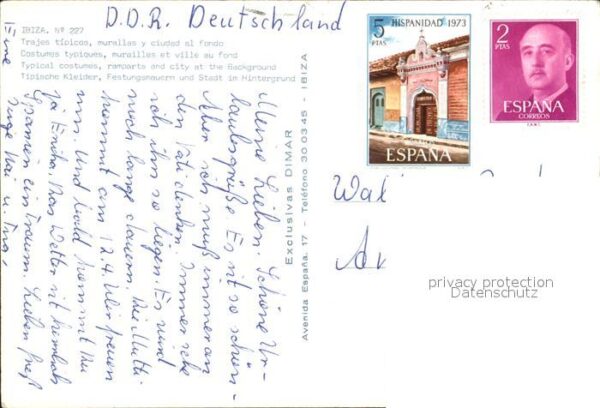 D.D.R. Deutschland
IBIZA. Nº 227
Trajes típicos, murallas y ciudad al fondo
Costumes typiques, murailles et ville au fond
Typical costumes, ramparts and city at the Background
Tipische Kleider, Festungsmauern und Stadt in Hintergrund
5
PTAS
HISPANIDAD 1973
ESPAÑA
2
PTAS
ESPAÑA
CORREOS
Exclusivas DIMAR
Avenida España, 17 - Teléfono 300345 - IBIZA
Meine Lieben. Schöne Ur-
laubsgrüße. Es ist so schön.
Aber ich muß immer an
den Vati denken. Immer
ihn so liegen. Es wird
noch lange dauern. Die Mutti
kommt am 12.4. Wir freuen
uns. Und bald kommt
ja Das Wetter ist herrlich
Spanien ein Traum. Lieben Gruß
Eure
privacy protection
Datenschutz